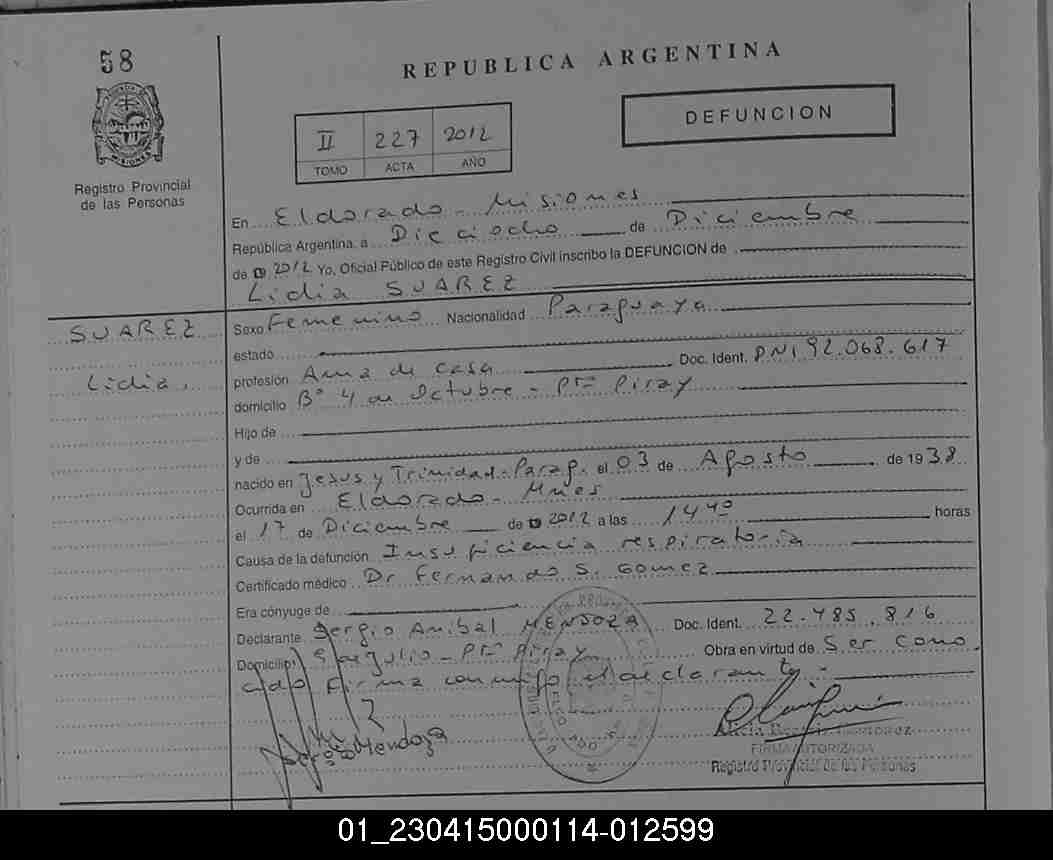 58
REPUBLICA ARGENTINA
DEFUNCION
II 227 2012
TOMO ACTA AÑO
MISIONES
Registro Provincial
de las Personas
En Eldorado - Misiones
República Argentina, a Dieciocho de Diciembre
de 2012 Yo, Oficial Público de este Registro Civil inscribo la DEFUNCION de
Lidia SUAREZ
SUAREZ
Lidia.
Sexo Femenino Nacionalidad Paraguaya
estado
profesión Ama de casa Doc. Ident. DNI 92.068.617
domicilio B° 4 de Octubre - Pto Piray
Hijo de
y de
nacido en Jesus y Trinidad - Parag. el 03 de Agosto de 1938
Ocurrida en Eldorado - Mnes
el 17 de Diciembre de 2012 a las 14 40 horas
Causa de la defunción Insuficiencia respiratoria
Certificado médico Dr Fernando S. Gomez
Era cónyuge de
Declarante Sergio Anibal MENDOZA Doc. Ident. 22.485.816
Domicilio 9 de Julio - Pto Piray Obra en virtud de Ser como
firma conmigo el declarante.-
Mendoza
FIRMA AUTORIZADA
Registro Provincial de las Personas
01_230415000114-012599